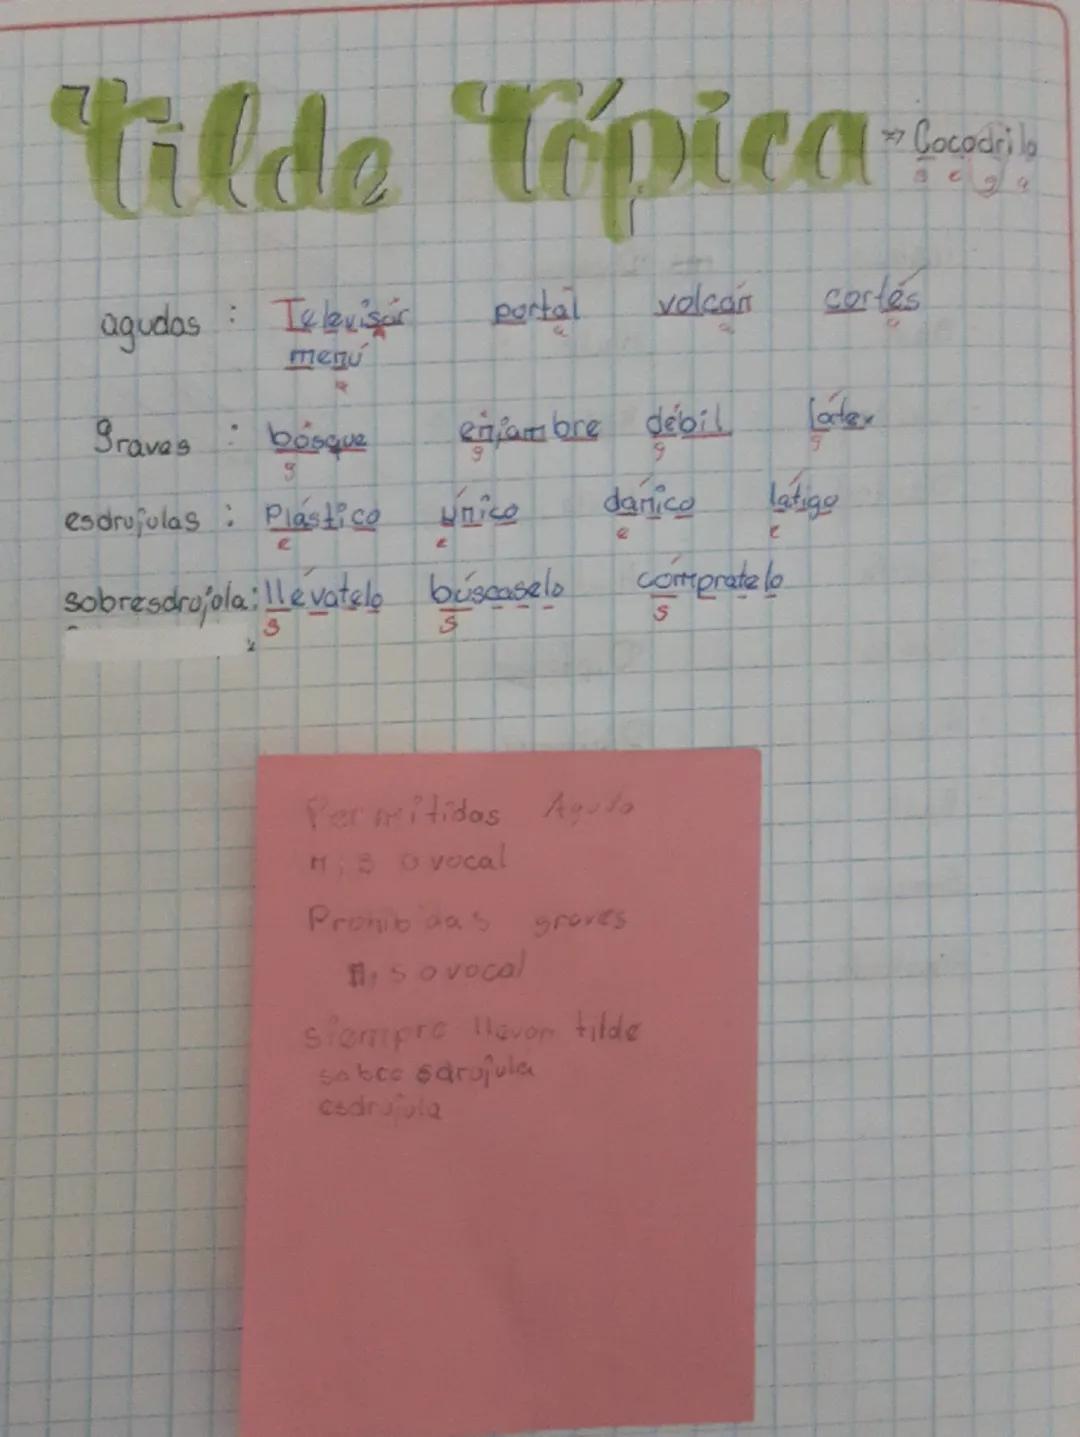 Tilde Tópica => Cocodrilo
s e g a
agudas : Televisár portal volcán cortés
a a a
menú
a
graves : bosque enjambre débil látex
g g g g
esdrujulas : Plástico único dánico látigo
e e e e
sobresdrojola: llévatelo búscaselo cómpratelo
s s s
Permitidas Aguda
n, s o vocal
Prohibidas graves
n, s o vocal
siempre llevan tilde
sobre sdrujula
esdrujula